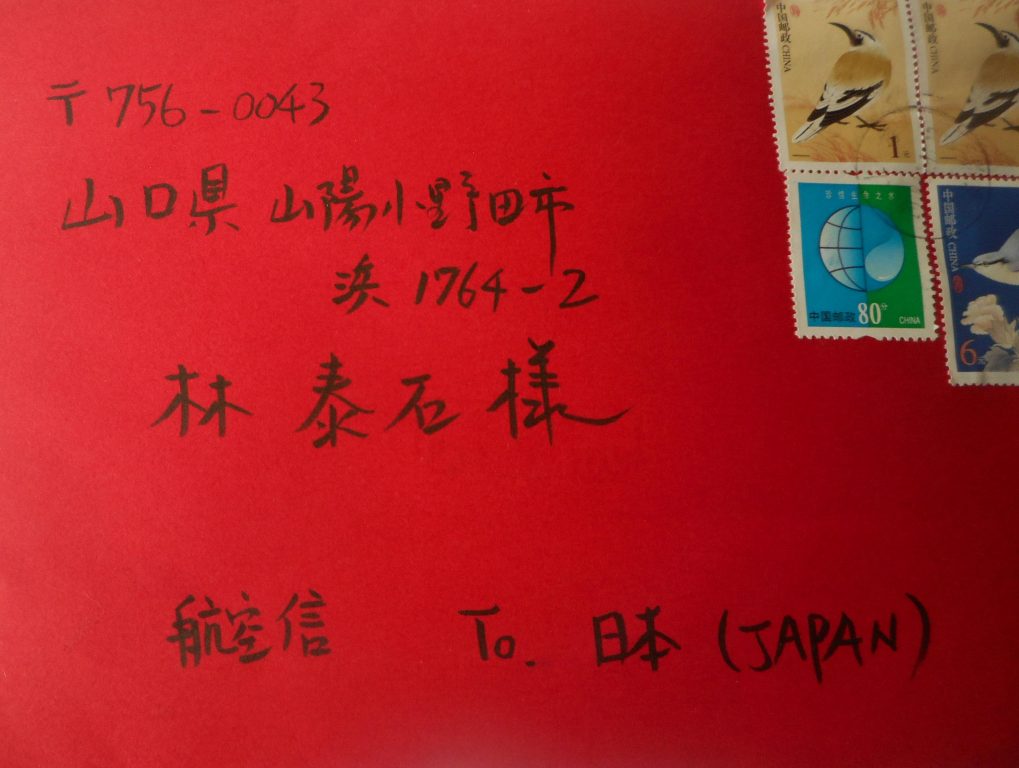 〒756-0043
山口県 山陽小野田市
浜 1764-2
林 泰石 様
航空信 To. 日本 (JAPAN)
中国邮政 CHINA
1元
中国邮政 CHINA
中国邮政 80分 CHINA
中国邮政 CHINA
6元